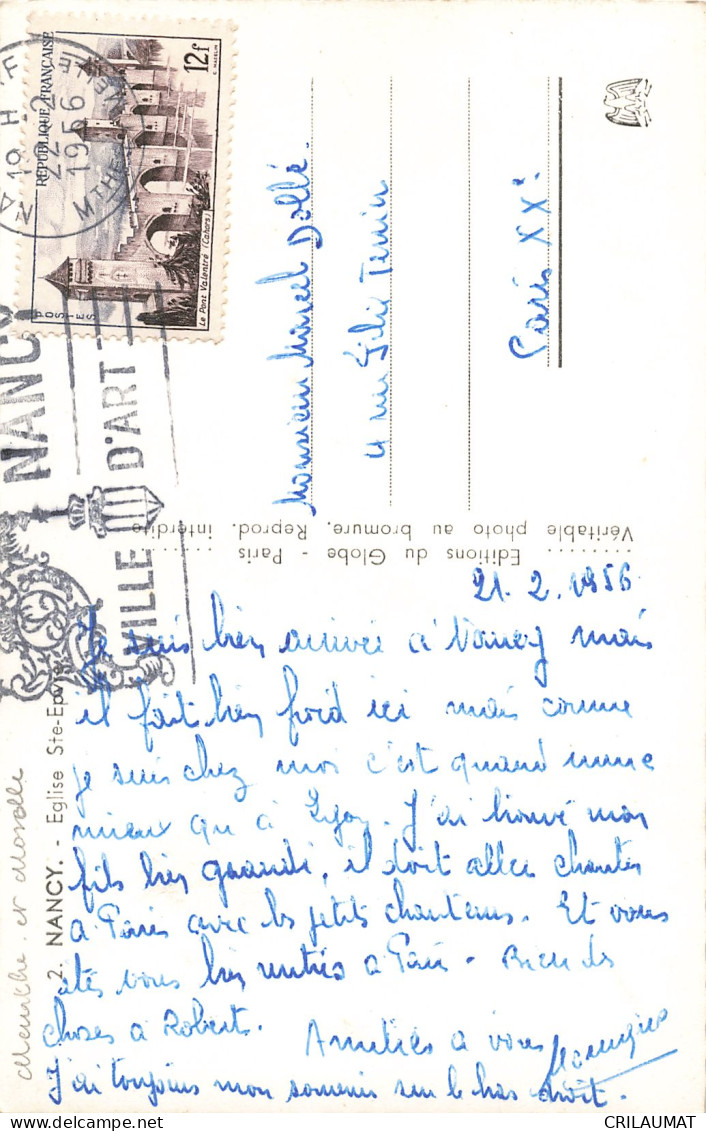 RÉPUBLIQUE FRANÇAISE
12f
POSTES
Le Pont Valentré (Cahors)
19 H
22-2
1956
NANCY
VILLE D'ART
Monsieur Marcel Dollé.
4 rue Félix Terrier
Paris XXe.
Editions du Globe - Paris
Véritable photo au bromure. Reprod. interdite
2. NANCY. - Eglise Ste-Epvre
Meurthe et Moselle
21. 2. 1956
Je suis bien arrivée à Nancy mais
il fait bien froid ici mais comme
je suis chez moi c'est quand même
mieux qu'à . J'ai trouvé mon
fils bien grandi, il doit aller chanter
à Paris avec les petits chanteurs. Et vous
êtes vous bien rentrés à Paris - Bien des
choses à Robert. Amitiés à vous
J'ai toujours mon souvenir sur le bras droit.
CRILAUMAT